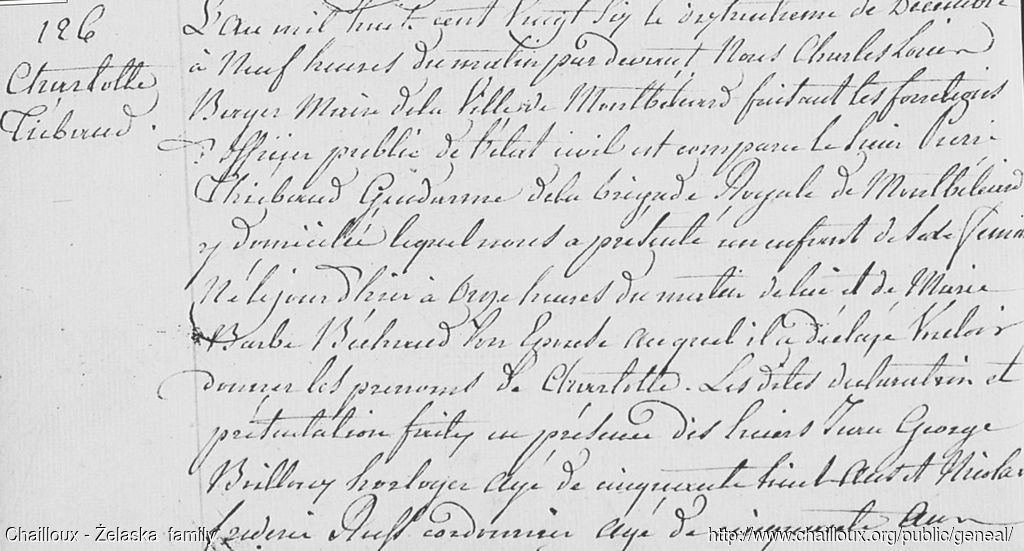 126
Charlotte
Thiébaud.
L'an mil huit cent vingt six le dix huitieme de Décembre
à Neuf heures du matin par devant Nous Charles Louis
Berger Maire de la Ville de Montbéliard faisant les fonctions
d'Officier public de l'état civil est comparu le Sieur Pierre
Thiébaud Gendarme de la brigade Royale de Montbéliard
y domicilié lequel nous a présenté un enfant de Sexe
Né le jour d'hier à Onze heures du matin de lui et de Marie
Barbe Son Epouse auquel il a déclaré Vouloir
donner les prenoms de Charlotte. Les dites declaration et
présentation faites en présence des Sieurs Jean George
horloger agé de cinquante huit ans et Nicolas
frederic cordonnier agé de cinquante ans
Chailloux - Żelaska family
http://www.chailloux.org/public/geneal/